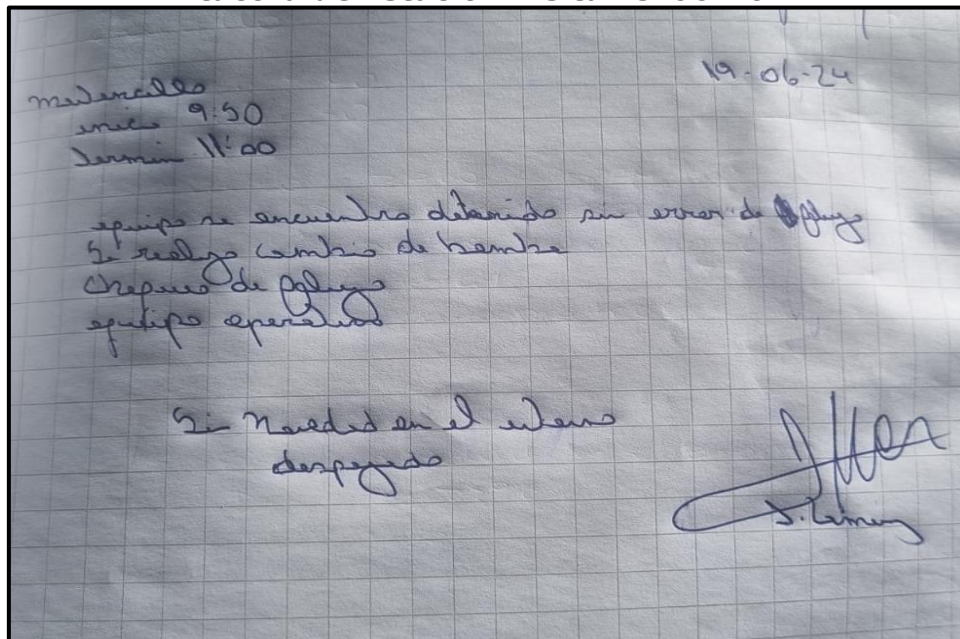 19-06-24
inicio 9:50
Termin 11:00
equipo se encuentra detenido sin error de flujo
Se realizo cambio de bomba
chequeo de flujo
equipo operativo
Sin Novedad en el
despejado